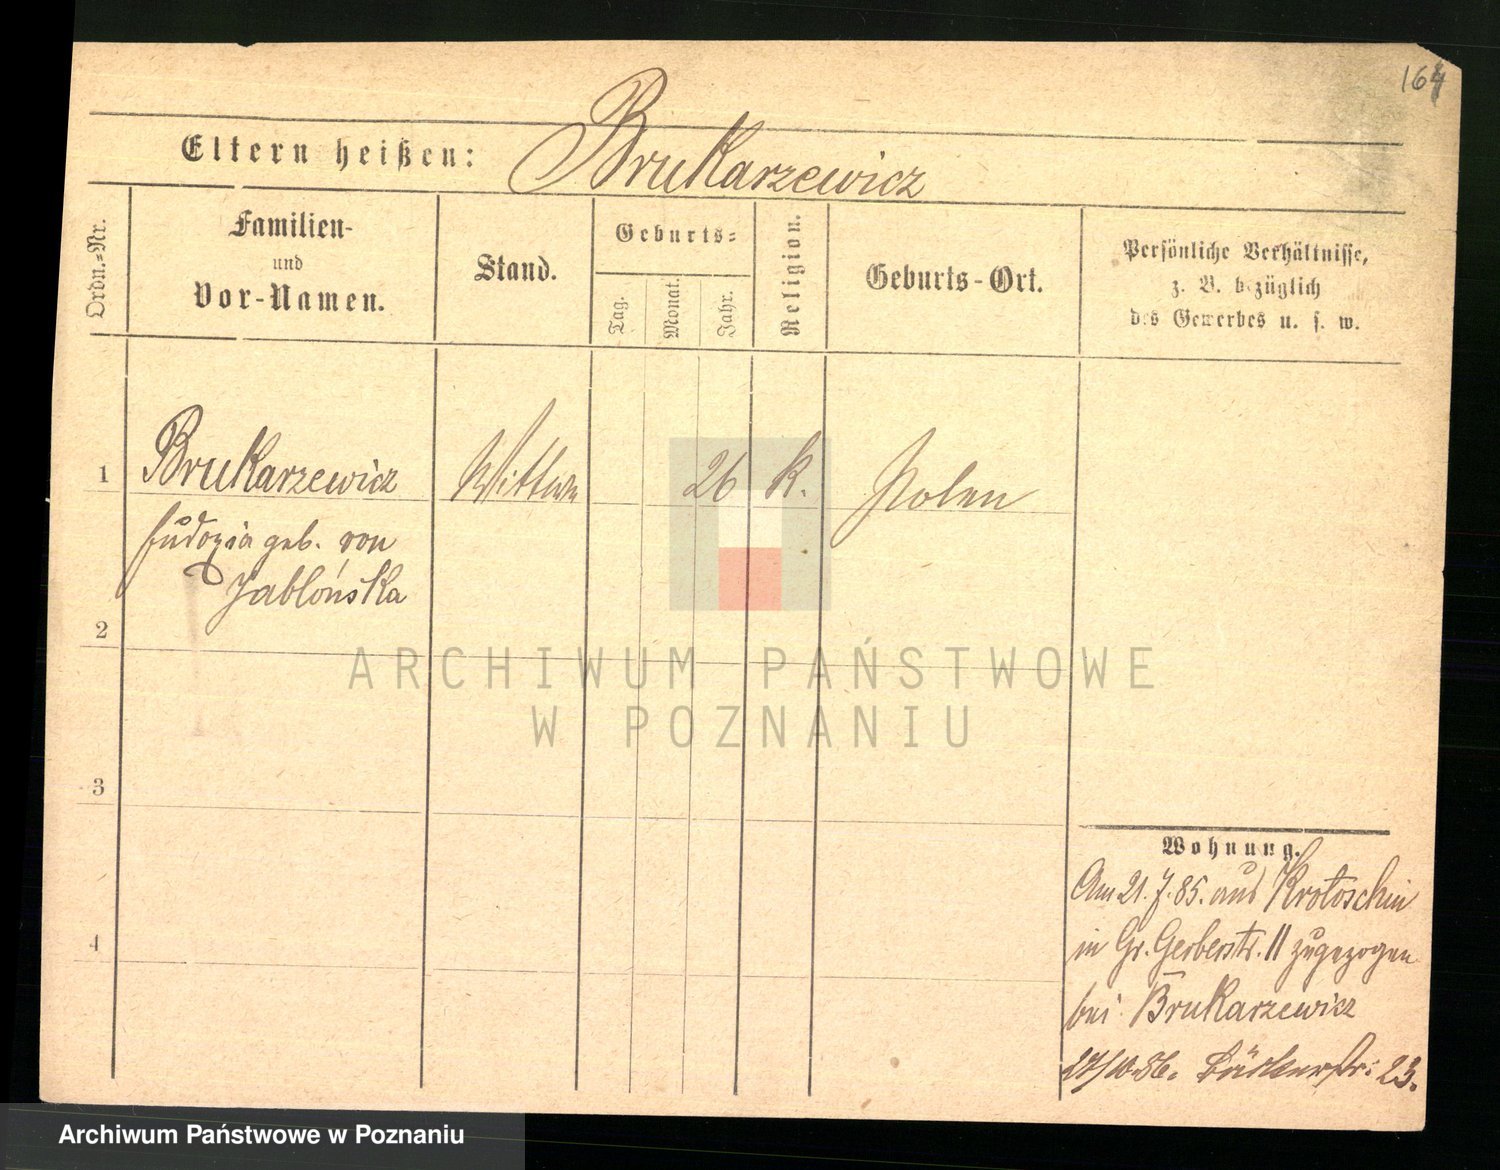 164
Eltern heißen: Brukarzewicz
Ordn.-Nr.
Familien-
und
Vor-Namen.
Stand.
Geburts-
Tag.
Monat.
Jahr.
Religion.
Geburts-Ort.
Persönliche Verhältnisse,
z. B. bezüglich
des Gewerbes u. s. w.
1 Brukarzewicz Wittwe 26 k. Polen
geb. von
Jabłońska
2
3
4
ARCHIWUM PAŃSTWOWE
W POZNANIU
Wohnung.
Am 21.7.85. aus Krotoschin
in Gr. Gerberstr. 11 zugezogen
bei Brukarzewicz
27/10.86. Bäckerstr: 23.
Archiwum Państwowe w Poznaniu